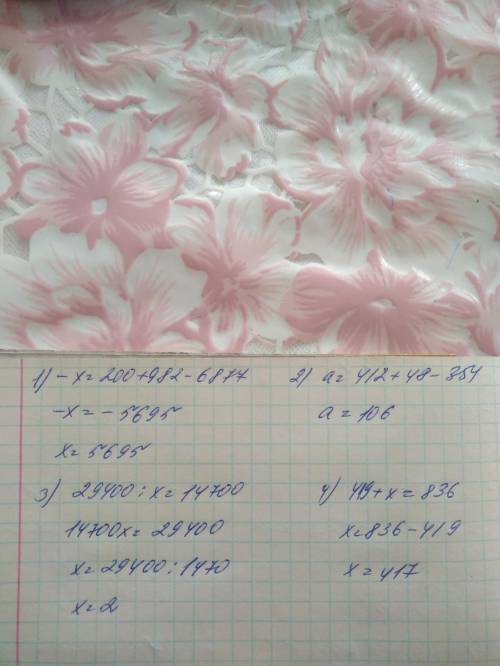 1) -x=200+982-6877
-x=-5695
x=5695
2) a=412+48-354
a=106
3) 29400:x=14700
14700x=29400
x=29400:1470
x=2
4) 419+x=836
x=836-419
x=417